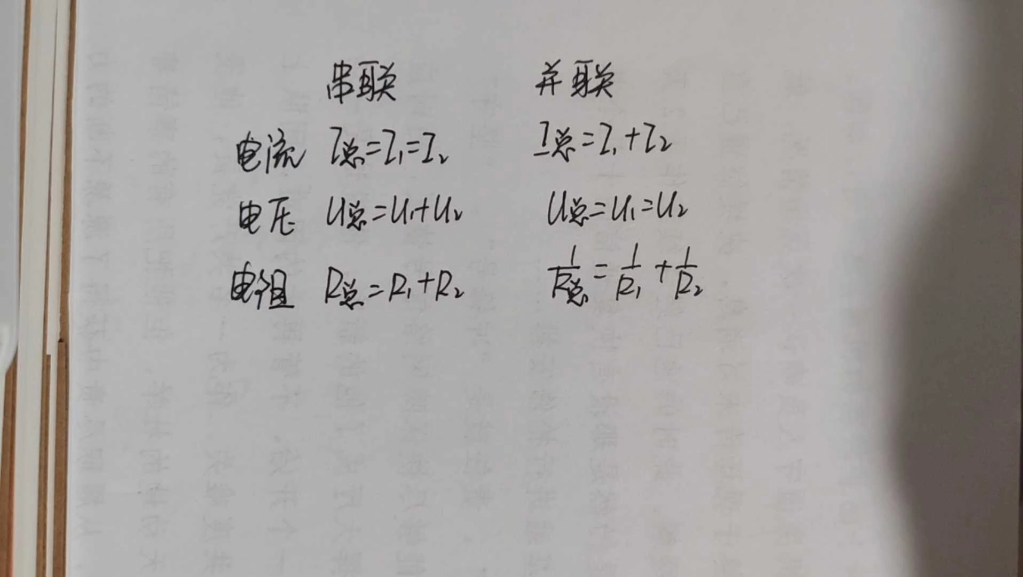 串联 并联
电流 I总=I₁=I₂ I总=I₁+I₂
电压 U总=U₁+U₂ U总=U₁=U₂
电阻 R总=R₁+R₂ 1/R总=1/R₁+1/R₂